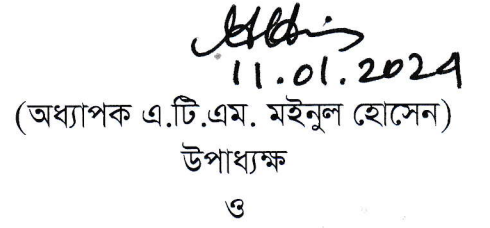 11.01.2024
(অধ্যাপক এ.টি.এম. মইনুল হোসেন)
উপাধ্যক্ষ
ও